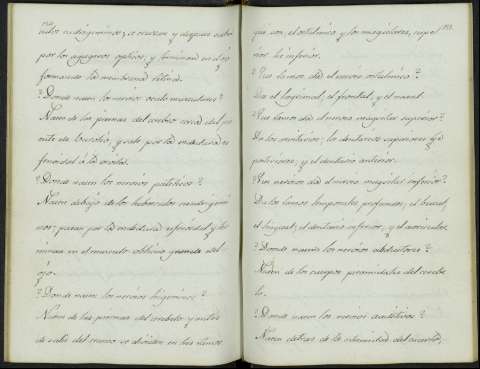 culos cuadrigeminos; se cruzan y despues salen
por los agugeros opticos, y terminan en el ojo
formando la membrana retina.
? Donde nacen los nervios oculo musculares?
Nacen de las piernas del cerebro cerca del pu
ente de Varolio, y sale por la endidura es
fenoidal á la orvita.
? Donde nacen los nervios pateticos?
Nacen debajo de los tuberculos cuadrigemi
nos; pasan por la endidura esfenoidal y ter
minan en el musculo oblicuo grande del
ojo.
? Donde nacen los nervios trigeminos?
Nacen de las piernas del cerebelo y antes
de salir del craneo se dividen en tres ramos
que son, el oftalmico y los maxilares, supe
rior é inferior.
? Que ramos dá el nervio oftalmico?
Da el lagrimal, el frontal, y el nasal.
? Que ramos dá el nervio maxilar superior?
Da los dentarios superiores y
posteriores, y el dentario anterior.
? Que nervios dá el nervio maxilar inferior?
Da los ramos temporales profundos, el bucal,
el lingual, el dentario inferior, y el auricular.
? Donde nacen los nervios abductores?
Nacen de los cuerpos piramidales del cerebe
lo.
? Donde nacen los nervios auditivos?
Nacen detras de la extremidad del